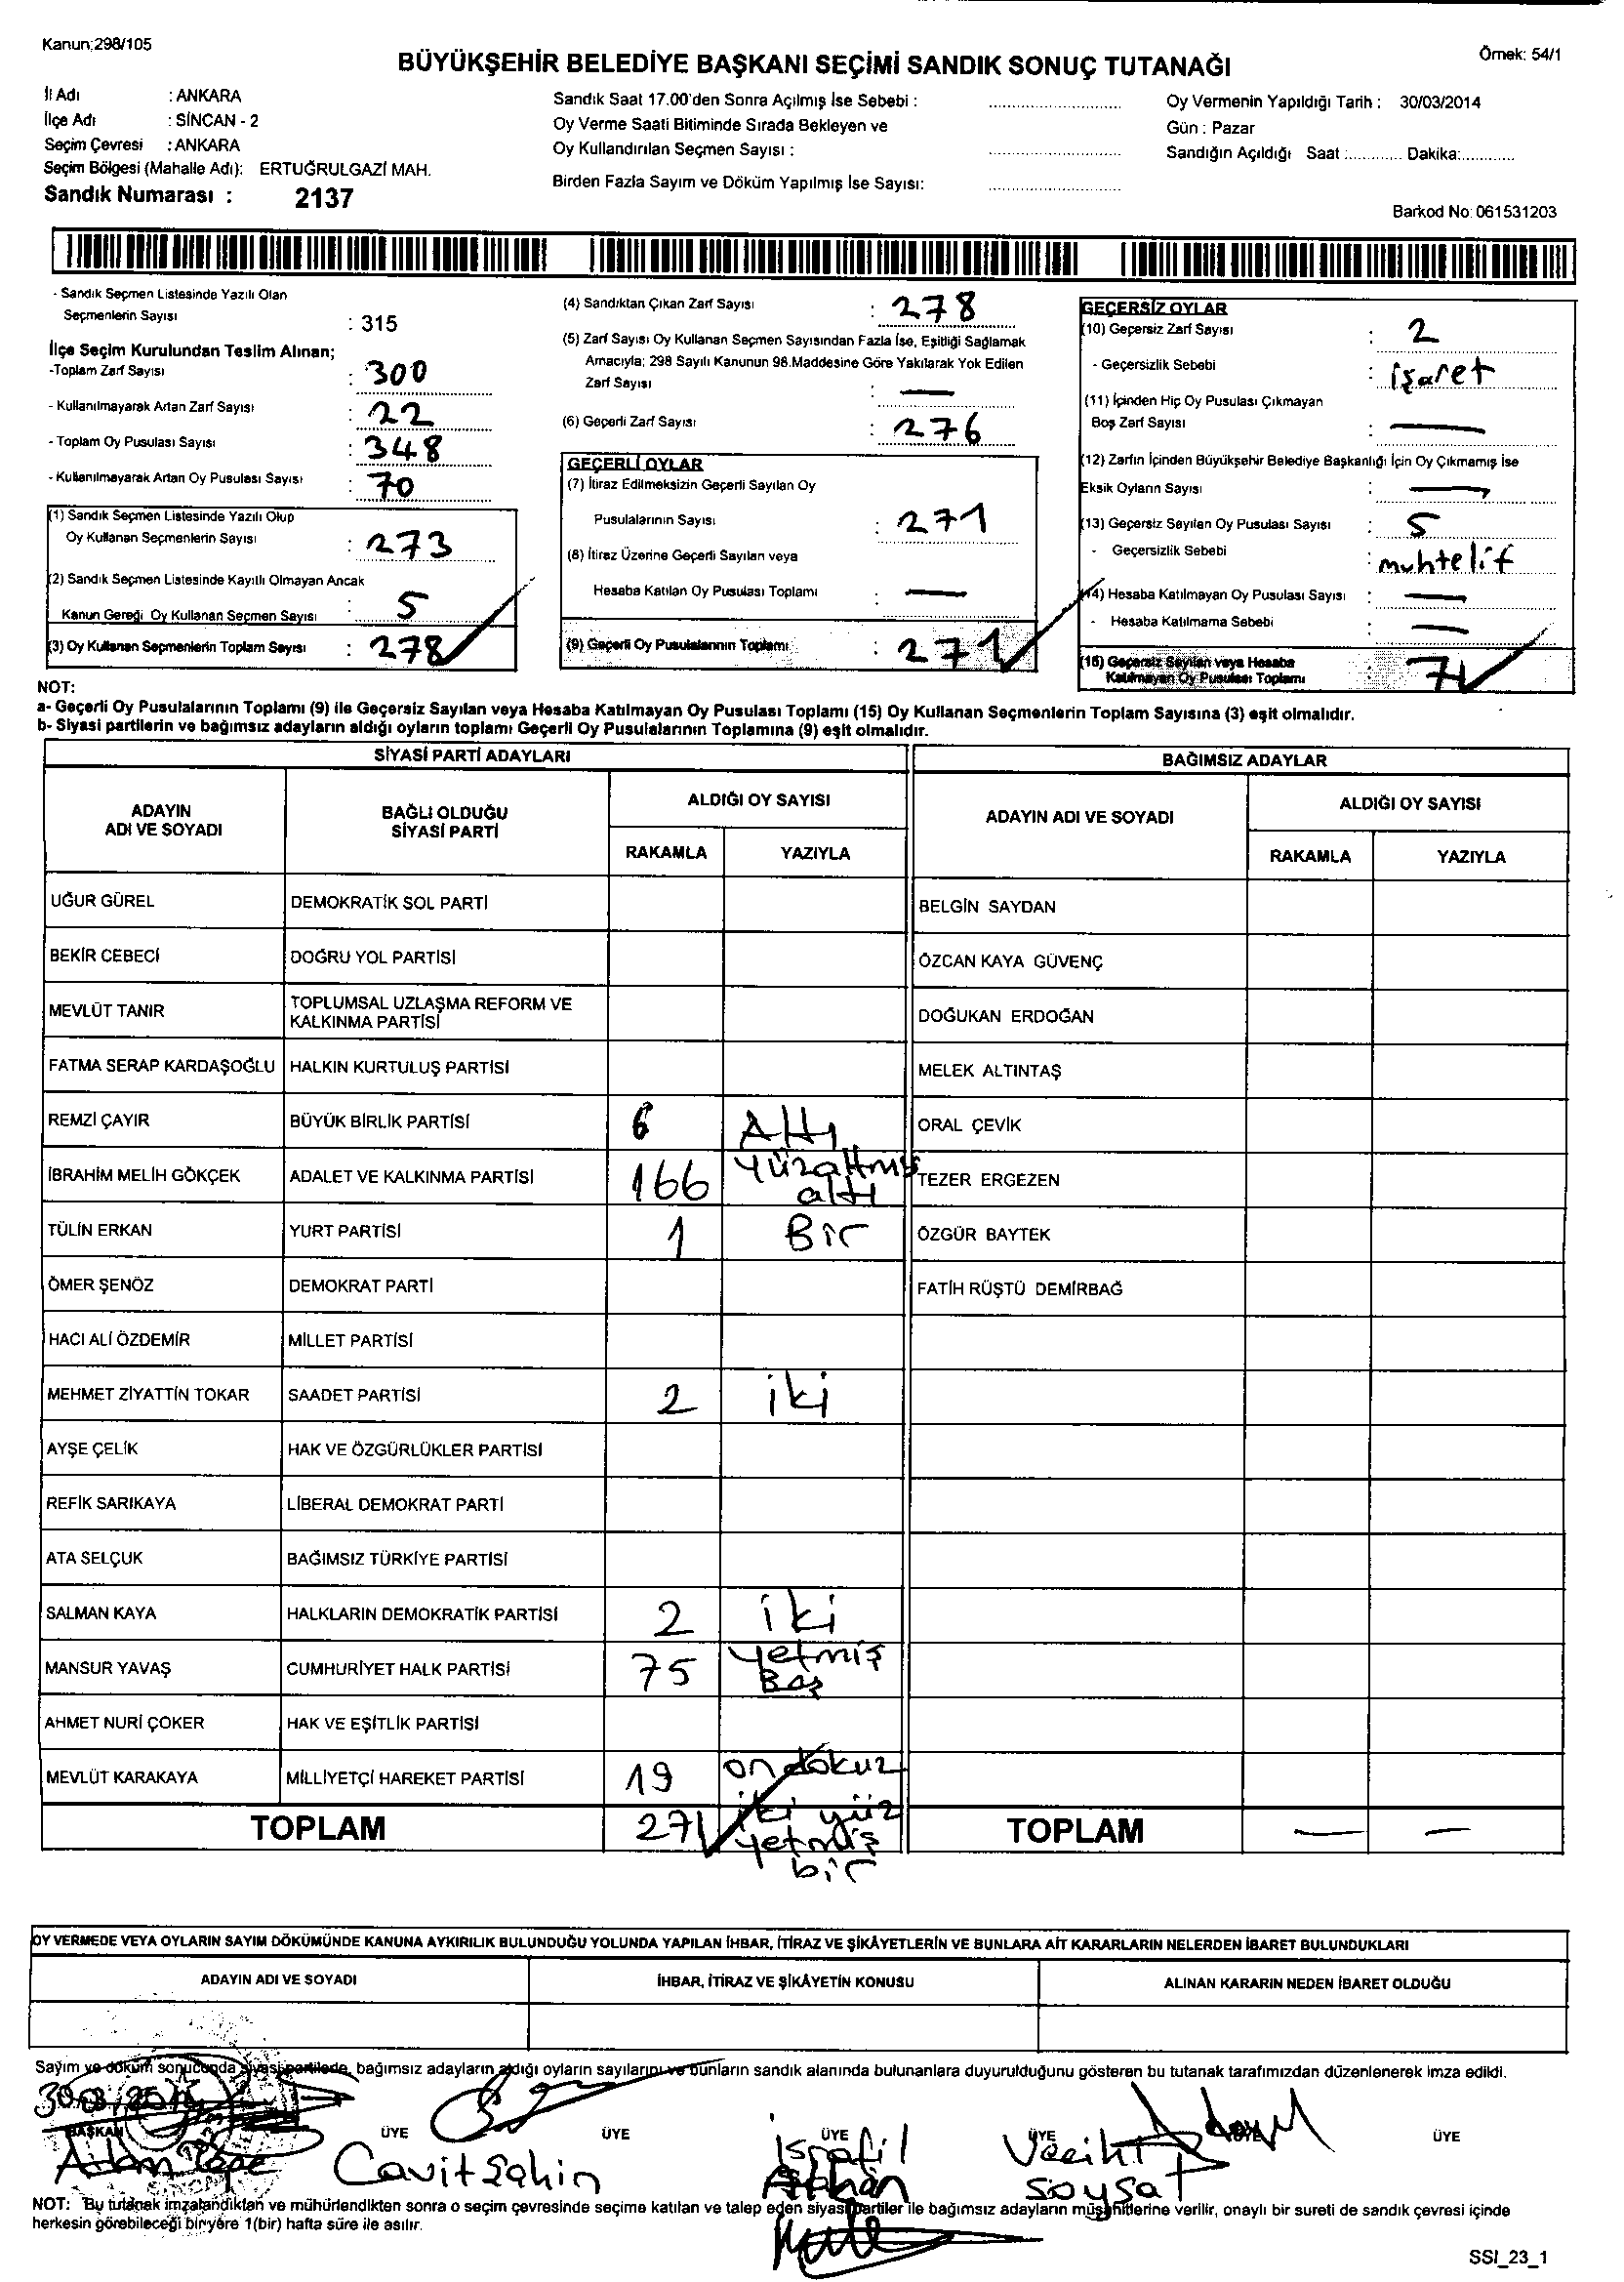 Kanun:298/105
BÜYÜKŞEHİR BELEDİYE BAŞKANI SEÇİMİ SANDIK SONUÇ TUTANAĞI
Örnek: 54/1
İl Adı : ANKARA
İlçe Adı : SİNCAN - 2
Seçim Çevresi : ANKARA
Seçim Bölgesi (Mahalle Adı): ERTUĞRULGAZİ MAH.
Sandık Numarası : 2137
Sandık Saat 17.00'den Sonra Açılmış İse Sebebi :
Oy Verme Saati Bitiminde Sırada Bekleyen ve
Oy Kullandırılan Seçmen Sayısı :
Birden Fazla Sayım ve Döküm Yapılmış İse Sayısı:
Oy Vermenin Yapıldığı Tarih : 30/03/2014
Gün : Pazar
Sandığın Açıldığı Saat :............ Dakika:............
Barkod No: 061531203
- Sandık Seçmen Listesinde Yazılı Olan
Seçmenlerin Sayısı : 315
İlçe Seçim Kurulundan Teslim Alınan;
-Toplam Zarf Sayısı : 300
- Kullanılmayarak Artan Zarf Sayısı : 22
- Toplam Oy Pusulası Sayısı : 348
- Kullanılmayarak Artan Oy Pusulası Sayısı : 70
(1) Sandık Seçmen Listesinde Yazılı Olup
Oy Kullanan Seçmenlerin Sayısı : 273
(2) Sandık Seçmen Listesinde Kayıtlı Olmayan Ancak
Kanun Gereği Oy Kullanan Seçmen Sayısı : 5
(3) Oy Kullanan Seçmenlerin Toplam Sayısı : 278
(4) Sandıktan Çıkan Zarf Sayısı : 278
(5) Zarf Sayısı Oy Kullanan Seçmen Sayısından Fazla İse, Eşitliği Sağlamak
Amacıyla; 298 Sayılı Kanunun 98.Maddesine Göre Yakılarak Yok Edilen
Zarf Sayısı : —
(6) Geçerli Zarf Sayısı : 276
GEÇERLİ OYLAR
(7) İtiraz Edilmeksizin Geçerli Sayılan Oy
Pusulalarının Sayısı : 271
(8) İtiraz Üzerine Geçerli Sayılan veya
Hesaba Katılan Oy Pusulası Toplamı : —
(9) Geçerli Oy Pusulalarının Toplamı : 271
GEÇERSİZ OYLAR
(10) Geçersiz Zarf Sayısı : 2
- Geçersizlik Sebebi : işaret
(11) İçinden Hiç Oy Pusulası Çıkmayan
Boş Zarf Sayısı : —
(12) Zarfın İçinden Büyükşehir Belediye Başkanlığı İçin Oy Çıkmamış İse
Eksik Oyların Sayısı : —
(13) Geçersiz Sayılan Oy Pusulası Sayısı : 5
- Geçersizlik Sebebi : muhtelif
(14) Hesaba Katılmayan Oy Pusulası Sayısı : —
- Hesaba Katılmama Sebebi : —
(15) Geçersiz Sayılan veya Hesaba
Katılmayan Oy Pusulası Toplamı : 7
NOT:
a- Geçerli Oy Pusulalarının Toplamı (9) ile Geçersiz Sayılan veya Hesaba Katılmayan Oy Pusulası Toplamı (15) Oy Kullanan Seçmenlerin Toplam Sayısına (3) eşit olmalıdır.
b- Siyasi partilerin ve bağımsız adayların aldığı oyların toplamı Geçerli Oy Pusulalarının Toplamına (9) eşit olmalıdır.
SİYASİ PARTİ ADAYLARI
ADAYIN ADI VE SOYADI
BAĞLI OLDUĞU SİYASİ PARTİ
ALDIĞI OY SAYISI
RAKAMLA YAZIYLA
UĞUR GÜREL DEMOKRATİK SOL PARTİ
BEKİR CEBECİ DOĞRU YOL PARTİSİ
MEVLÜT TANIR TOPLUMSAL UZLAŞMA REFORM VE KALKINMA PARTİSİ
FATMA SERAP KARDAŞOĞLU HALKIN KURTULUŞ PARTİSİ
REMZİ ÇAYIR BÜYÜK BİRLİK PARTİSİ 6 Altı
İBRAHİM MELİH GÖKÇEK ADALET VE KALKINMA PARTİSİ 166 yüzaltmış altı
TÜLİN ERKAN YURT PARTİSİ 1 Bir
ÖMER ŞENÖZ DEMOKRAT PARTİ
HACI ALİ ÖZDEMİR MİLLET PARTİSİ
MEHMET ZİYATTİN TOKAR SAADET PARTİSİ 2 iki
AYŞE ÇELİK HAK VE ÖZGÜRLÜKLER PARTİSİ
REFİK SARIKAYA LİBERAL DEMOKRAT PARTİ
ATA SELÇUK BAĞIMSIZ TÜRKİYE PARTİSİ
SALMAN KAYA HALKLARIN DEMOKRATİK PARTİSİ 2 iki
MANSUR YAVAŞ CUMHURİYET HALK PARTİSİ 75 yetmiş Beş
AHMET NURİ ÇOKER HAK VE EŞİTLİK PARTİSİ
MEVLÜT KARAKAYA MİLLİYETÇİ HAREKET PARTİSİ 19 ondokuz
TOPLAM 271 iki yüz yetmiş bir
BAĞIMSIZ ADAYLAR
ADAYIN ADI VE SOYADI
ALDIĞI OY SAYISI
RAKAMLA YAZIYLA
BELGİN SAYDAN
ÖZCAN KAYA GÜVENÇ
DOĞUKAN ERDOĞAN
MELEK ALTINTAŞ
ORAL ÇEVİK
TEZER ERGEZEN
ÖZGÜR BAYTEK
FATİH RÜŞTÜ DEMİRBAĞ
TOPLAM — —
OY VERMEDE VEYA OYLARIN SAYIM DÖKÜMÜNDE KANUNA AYKIRILIK BULUNDUĞU YOLUNDA YAPILAN İHBAR, İTİRAZ VE ŞİKÂYETLERİN VE BUNLARA AİT KARARLARIN NELERDEN İBARET BULUNDUKLARI
ADAYIN ADI VE SOYADI İHBAR, İTİRAZ VE ŞİKÂYETİN KONUSU ALINAN KARARIN NEDEN İBARET OLDUĞU
Sayım ve döküm sonucunda siyasi partilerle, bağımsız adayların aldığı oyların sayılarını ve bunların sandık alanında bulunanlara duyurulduğunu gösteren bu tutanak tarafımızdan düzenlenerek imza edildi.
BAŞKAN ÜYE ÜYE ÜYE ÜYE ÜYE
Cavit Şahin
İsrafil
Vecihi Soysat
NOT: Bu tutanak imzalandıktan ve mühürlendikten sonra o seçim çevresinde seçime katılan ve talep eden siyasi partiler ile bağımsız adayların müşahitlerine verilir, onaylı bir sureti de sandık çevresi içinde
herkesin görebileceği bir yere 1(bir) hafta süre ile asılır.
SSI_23_1